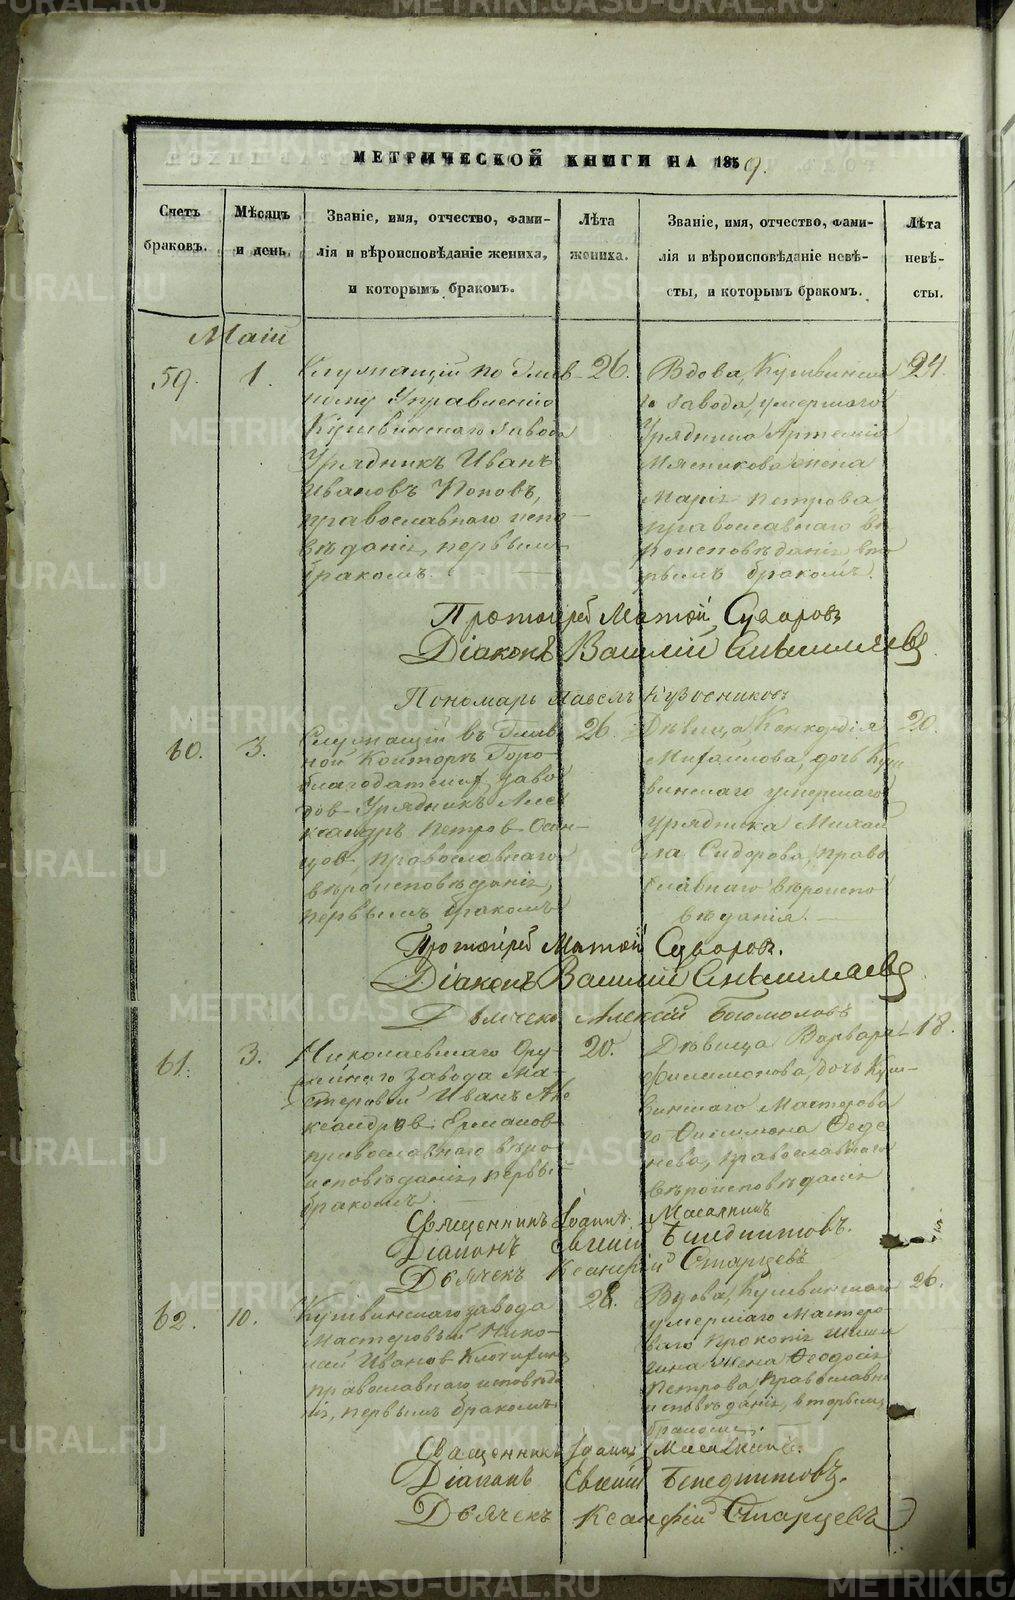 МЕТРИЧЕСКОЙ КНИГИ НА 1859.
Счетъ браковъ.
Мѣсяцъ и день
Званіе, имя, отчество, фами-
лія и вѣроисповѣданіе жениха,
и которымъ бракомъ.
Лѣта жениха.
Званіе, имя, отчество, фами-
лія и вѣроисповѣданіе невѣ-
сты, и которымъ бракомъ.
Лѣта невѣ-
сты.
Маій
59.
1.
Служащій по Глав-
ному Управленію
Кушвинскаго завода
Урядникъ Иванъ
Ивановъ Поповъ,
православнаго испо-
вѣданія, первымъ
бракомъ.
26.
Вдова, Кушвинска
го завода, умершаго
Урядника Артемія
Мясникова жена
Марія Петрова
православнаго вѣ
роисповѣданія вто
рымъ бракомъ.
24.
Протоіерей Матѳій Суворовъ
Діаконъ Василій
Пономарь Павелъ
60.
3.
Служащій въ Глав
ной Конторѣ Горо-
благодатскихъ заво
довъ Урядникъ Алек
ксандръ Петров Осин-
цов, православнаго
вѣроисповѣданія,
первымъ бракомъ
26.
Дѣвица Конкордія
Михайлова, дочь Куш
винскаго умершаго
урядника Михай
ла Сидорова, право
славнаго вѣроиспо
вѣданія.
20.
Протоіерей Матѳій Суворовъ.
Діаконъ Василій
Дьячекъ Алексій Богомоловъ
61.
3.
Николаевскаго Ору-
жейнаго завода Ма-
стеровой Иванъ Але
ксандров Ермаков
православнаго вѣро-
исповѣданія, первы
бракомъ.
20.
Дѣвица Варвара
Филимонова, дочь Куш-
винскаго Мастерова
го Филимона
православнаго
вѣроисповѣданія
18.
Священникъ Іоаннъ
Діаконъ Евгеній Бенедиктовъ.
Дьячекъ Ксанфій Старцевъ
62.
10.
Кушвинскаго завода
мастеровый Нико-
лай Иванов
православнаго исповѣда
нія, первымъ бракомъ
28.
Вдова, Кушвинскаго
умершаго Мастеро-
ваго Прокопія
жена Ѳеодосія
Петрова, православна
исповѣданія, вторымъ
бракомъ.
26.
Священникъ Іоаннъ
Діаконъ Евгеній Бенедиктовъ.
Дьячекъ Ксанфій Старцевъ
METRIKI.GASO-URAL.RU